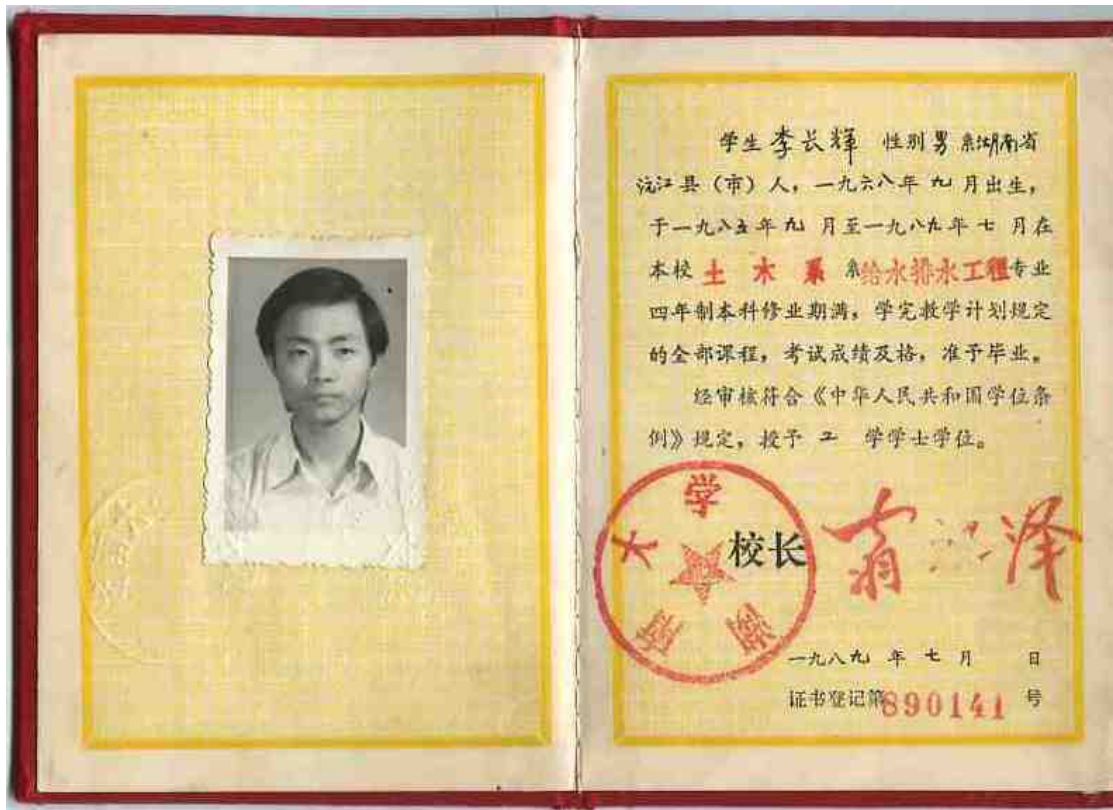 学生 李长辉 性别 男 系湖南省
沅江县（市）人，一九六八年 九 月出生，
于一九八五年 九 月至一九八九年 七 月在
本校 土木系 系给水排水工程专业
四年制本科修业期满，学完教学计划规定
的全部课程，考试成绩及格，准予毕业。
经审核符合《中华人民共和国学位条
例》规定，授予 工 学学士学位。
湖南大学
校长
翁 泽
一九八九 年 七 月 日
证书登记第890141 号